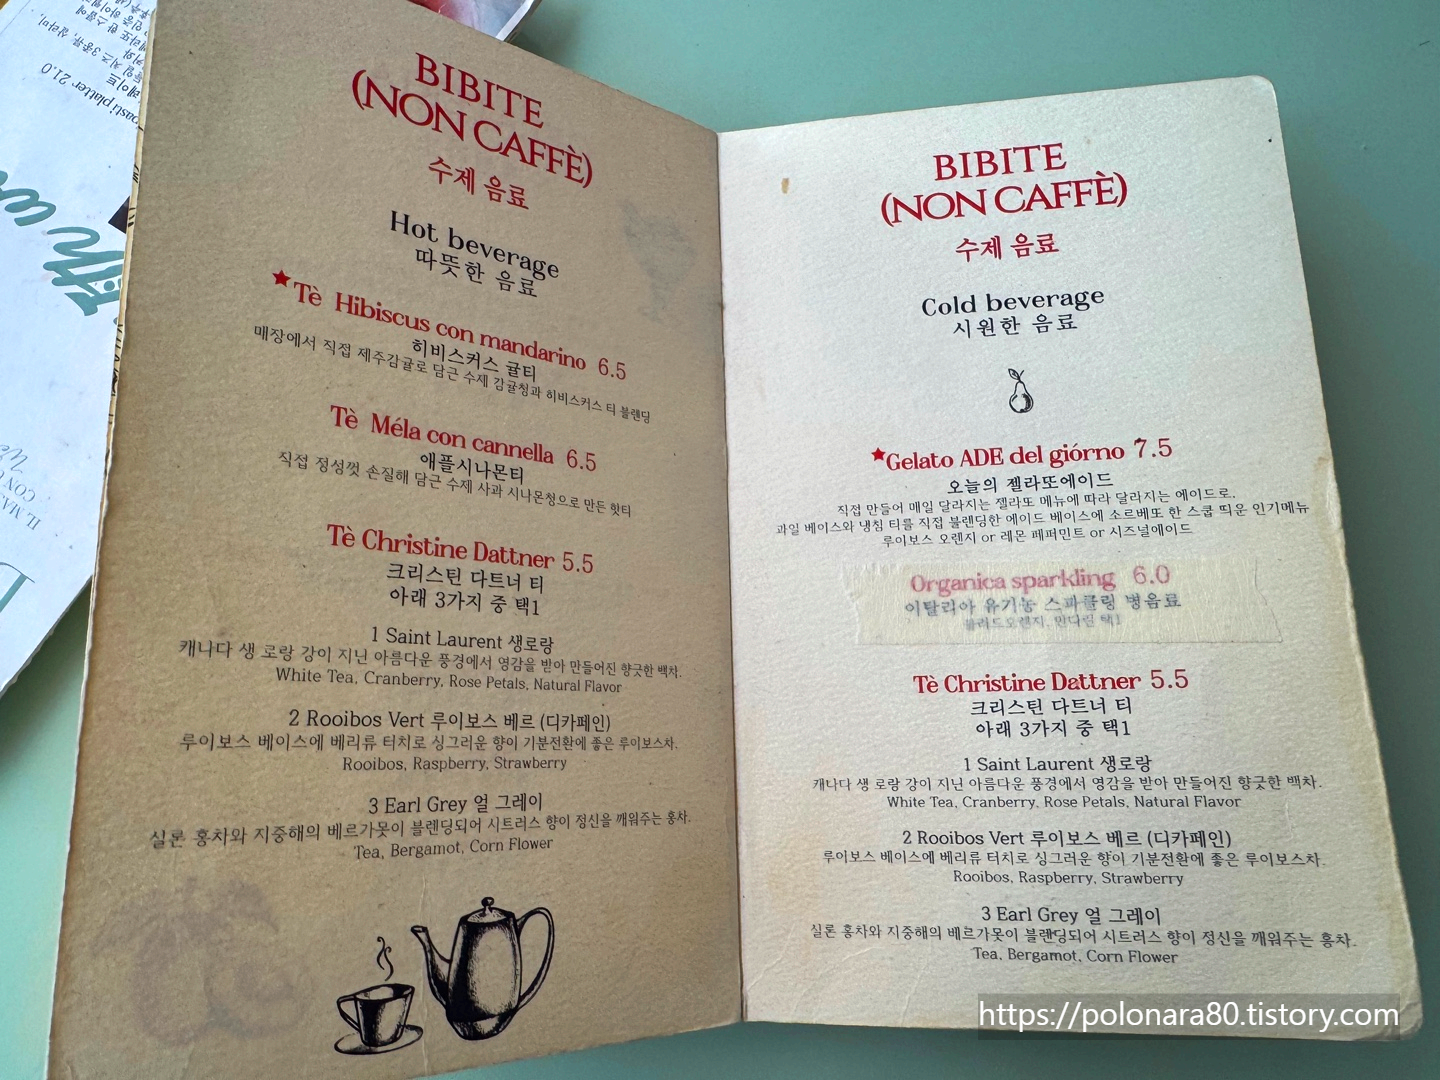 BIBITE
(NON CAFFÈ)
수제 음료
Hot beverage
따뜻한 음료
Tè Hibiscus con mandarino 6.5
히비스커스 귤티
매장에서 직접 제주감귤로 담근 수제 감귤청과 히비스커스 티 블렌딩
Tè Méla con cannella 6.5
애플시나몬티
직접 정성껏 손질해 담근 수제 사과 시나몬청으로 만든 핫티
Tè Christine Dattner 5.5
크리스틴 다트너 티
아래 3가지 중 택1
1 Saint Laurent 생로랑
캐나다 생 로랑 강이 지닌 아름다운 풍경에서 영감을 받아 만들어진 향긋한 백차.
White Tea, Cranberry, Rose Petals, Natural Flavor
2 Rooibos Vert 루이보스 베르 (디카페인)
루이보스 베이스에 베리류 터치로 싱그러운 향이 기분전환에 좋은 루이보스차.
Rooibos, Raspberry, Strawberry
3 Earl Grey 얼 그레이
실론 홍차와 지중해의 베르가못이 블렌딩되어 시트러스 향이 정신을 깨워주는 홍차.
Tea, Bergamot, Corn Flower
BIBITE
(NON CAFFÈ)
수제 음료
Cold beverage
시원한 음료
Gelato ADE del giórno 7.5
오늘의 젤라또에이드
직접 만들어 매일 달라지는 젤라또 메뉴에 따라 달라지는 에이드로,
과일 베이스와 냉침 티를 직접 블렌딩한 에이드 베이스에 소르베또 한 스쿱 띄운 인기메뉴
루이보스 오렌지 or 레몬 페퍼민트 or 시즈널에이드
Organica sparkling 6.0
이탈리아 유기농 스파클링 병음료
블러드오렌지, 만다린 택1
Tè Christine Dattner 5.5
크리스틴 다트너 티
아래 3가지 중 택1
1 Saint Laurent 생로랑
캐나다 생 로랑 강이 지닌 아름다운 풍경에서 영감을 받아 만들어진 향긋한 백차.
White Tea, Cranberry, Rose Petals, Natural Flavor
2 Rooibos Vert 루이보스 베르 (디카페인)
루이보스 베이스에 베리류 터치로 싱그러운 향이 기분전환에 좋은 루이보스차.
Rooibos, Raspberry, Strawberry
3 Earl Grey 얼 그레이
실론 홍차와 지중해의 베르가못이 블렌딩되어 시트러스 향이 정신을 깨워주는 홍차.
Tea, Bergamot, Corn Flower
platter 21.0
https://polonara80.tistory.com